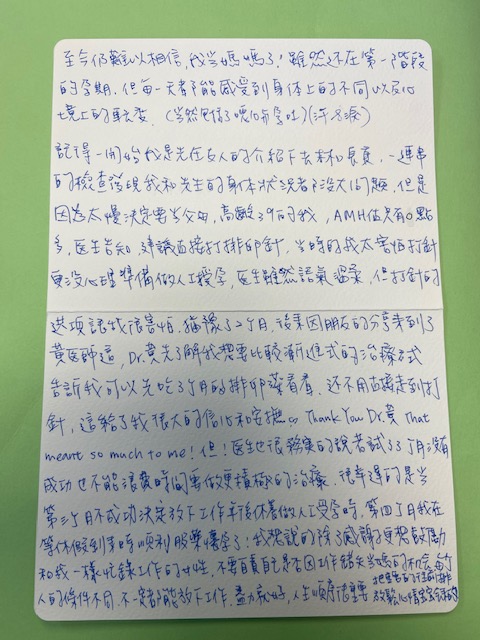 至今仍難以相信,我當媽媽了!雖然还在第一階段
的孕期,但每一天都能感受到身体上的不同以及心
境上的轉变。(当然包括了晚吐孕吐)(汗&淚)
記得一開始我是先在友人的介紹下去林口長庚,一連串
的檢查發現我和先生的身体狀況都沒大問題,但是
因為太慢決定要当父母,高齡39的我,AMH值只有0點
多,医生告知,建議直接打排卵針,当時的我太害怕打針
更沒心理準備做人工授孕,医生雖然語氣溫柔,但打針的
选项讓我很害怕,猶豫了2个月,後來因朋友的分享來到了
黃医師這,Dr.黃先了解我想要比較漸進式的治療方式
告訴我可以先吃3个月的排卵藥看看,还不用直接走到打
針,這給了我很大的信心和安撫。Thank You Dr.黃 That
meant so much to me!但!医生也很務实的說若試3个月沒有
成功也不能浪費時間要做更積極的治療。很幸運的是当
第三个月不成功決定放下工作年後休養做人工受孕時,第四个月我在
等休假到來時順利股票懷孕了!我想說的除了感謝更想鼓勵
和我一樣忙錄工作的女性,不要責怪自己是否因工作錯失当媽的机会,每个
人的條件不同,不一定都能放下工作,盡力就好,人生順序很重要
把重要的往前排
放鬆心情寶宝会來的